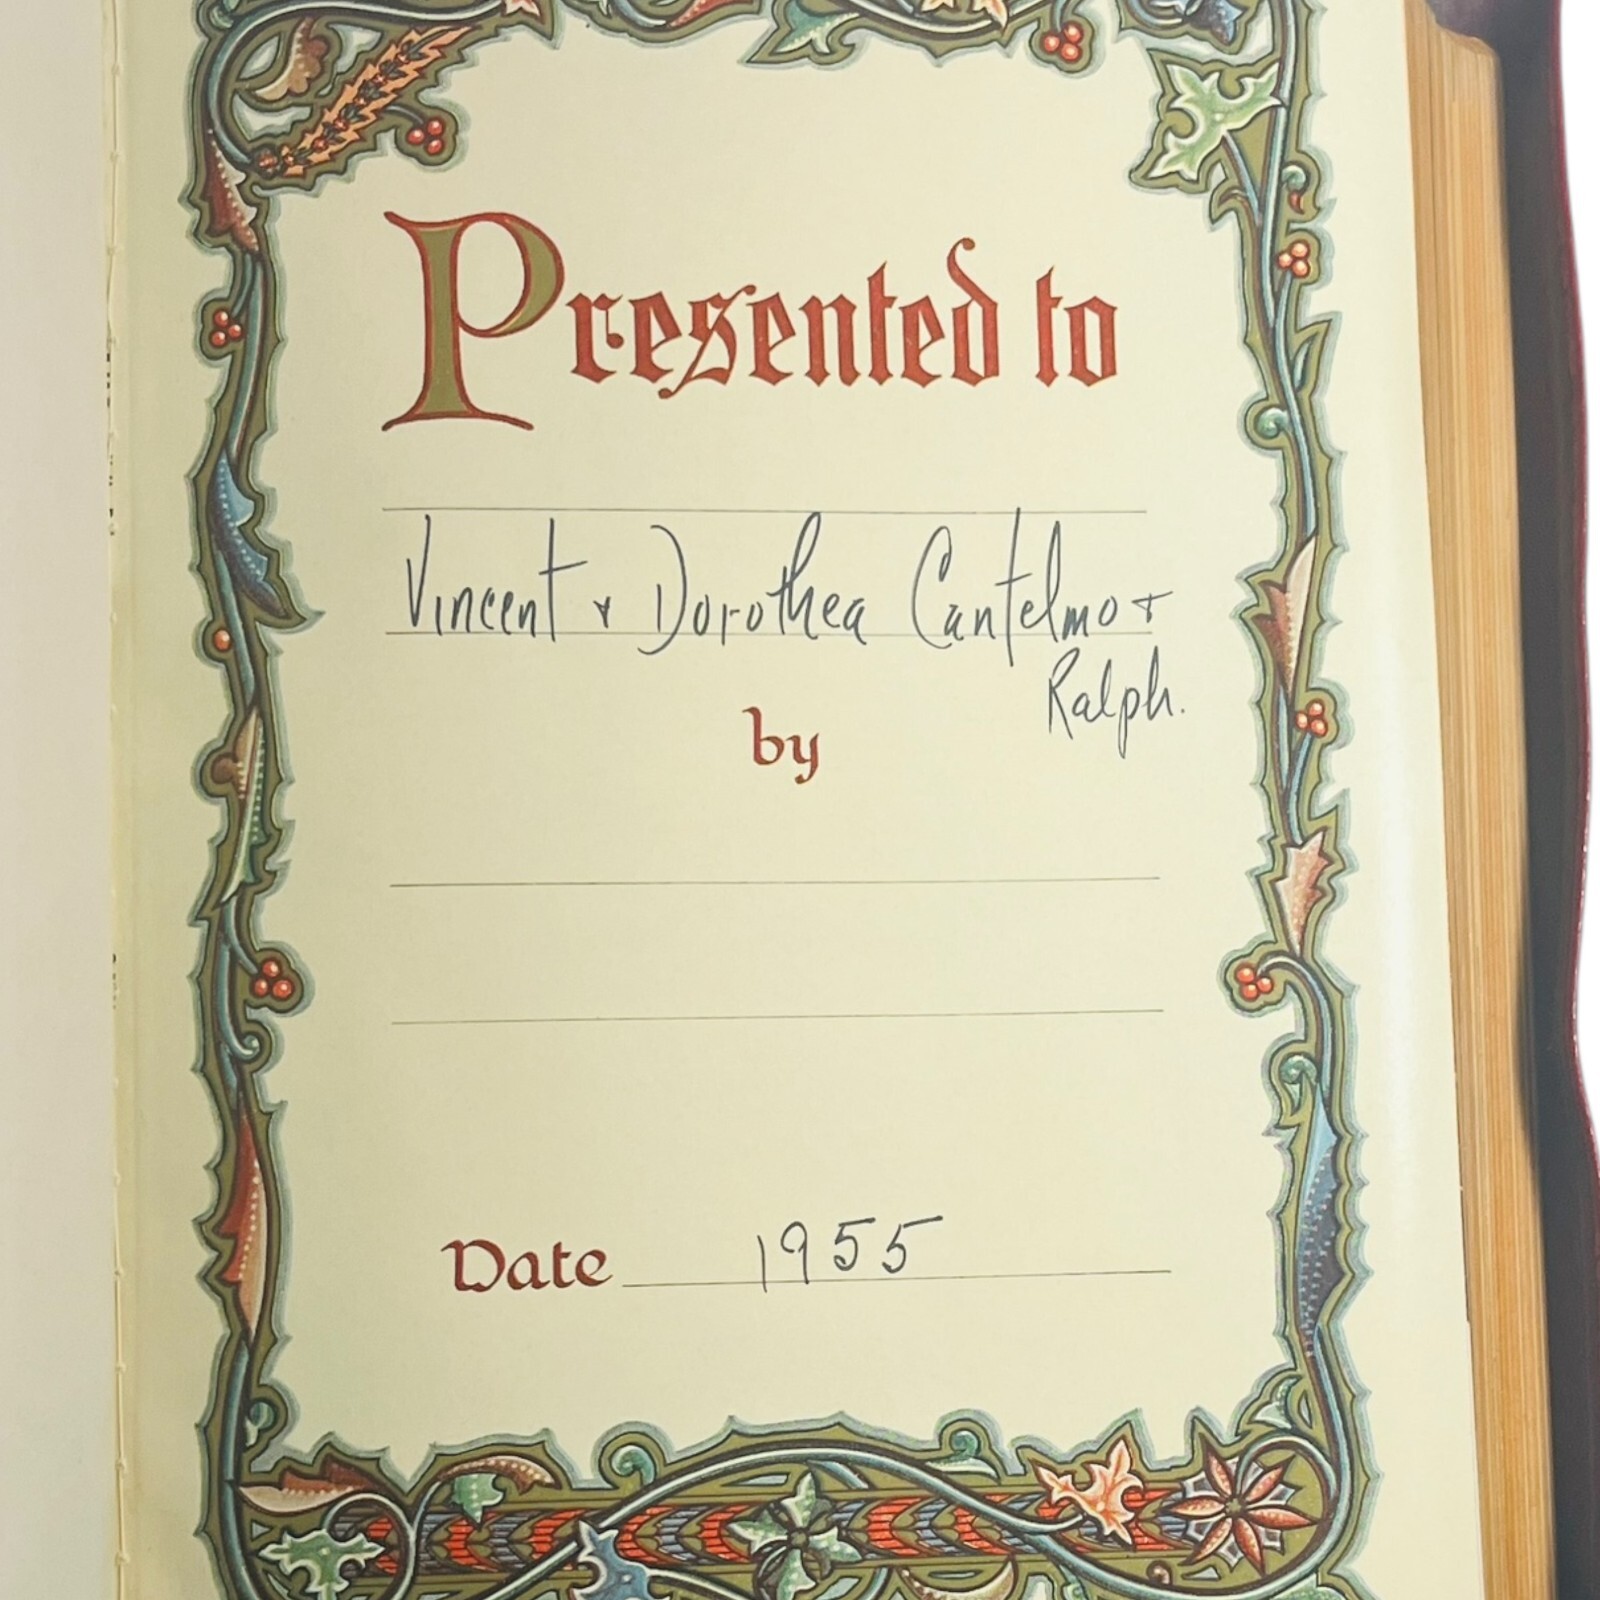 Presented to
Vincent & Dorothea Cantelmo +
Ralph.
by
Date 1955